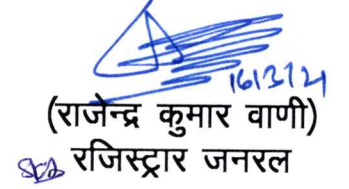 16/3/21
(राजेन्द्र कुमार वाणी)
रजिस्ट्रार जनरल